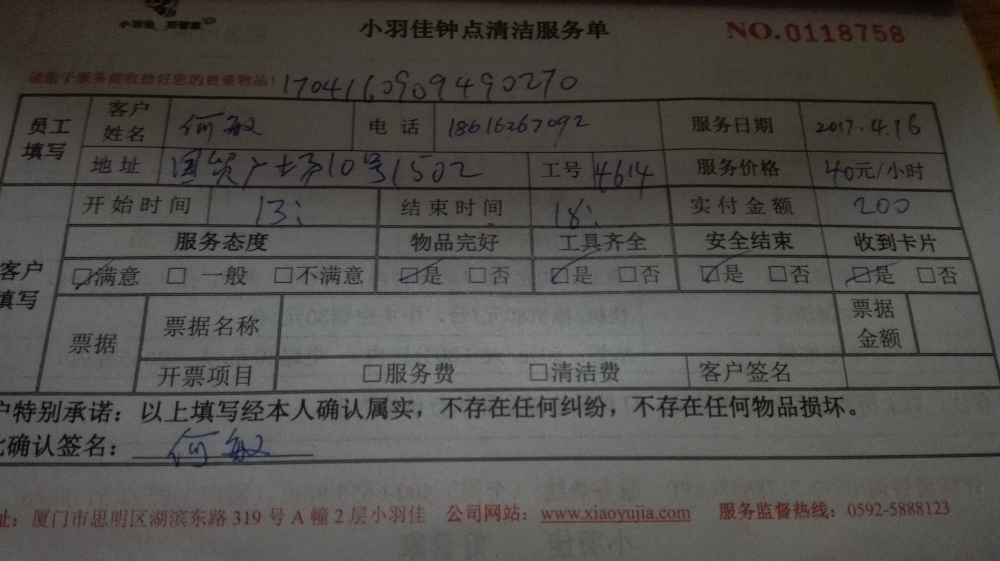 小羽佳 好管家
小羽佳钟点清洁服务单 NO.0118758
请您于服务前收拾好您的贵重物品! 170416090949 0270
员工填写 客户姓名 何敏 电话 18616267092 服务日期 2017.4.16
地址 国贸广场10号1502 工号 4614 服务价格 40元/小时
客户填写 开始时间 13: 结束时间 18: 实付金额 200
服务态度 物品完好 工具齐全 安全结束 收到卡片
☑满意 □一般 □不满意 ☑是 □否 ☑是 □否 ☑是 □否 ☑是 □否
票据 票据名称 票据金额
开票项目 □服务费 □清洁费 客户签名
户特别承诺：以上填写经本人确认属实，不存在任何纠纷，不存在任何物品损坏。
比确认签名： 何敏
址：厦门市思明区湖滨东路 319 号 A 幢 2 层小羽佳 公司网站：www.xiaoyujia.com 服务监督热线：0592-5888123